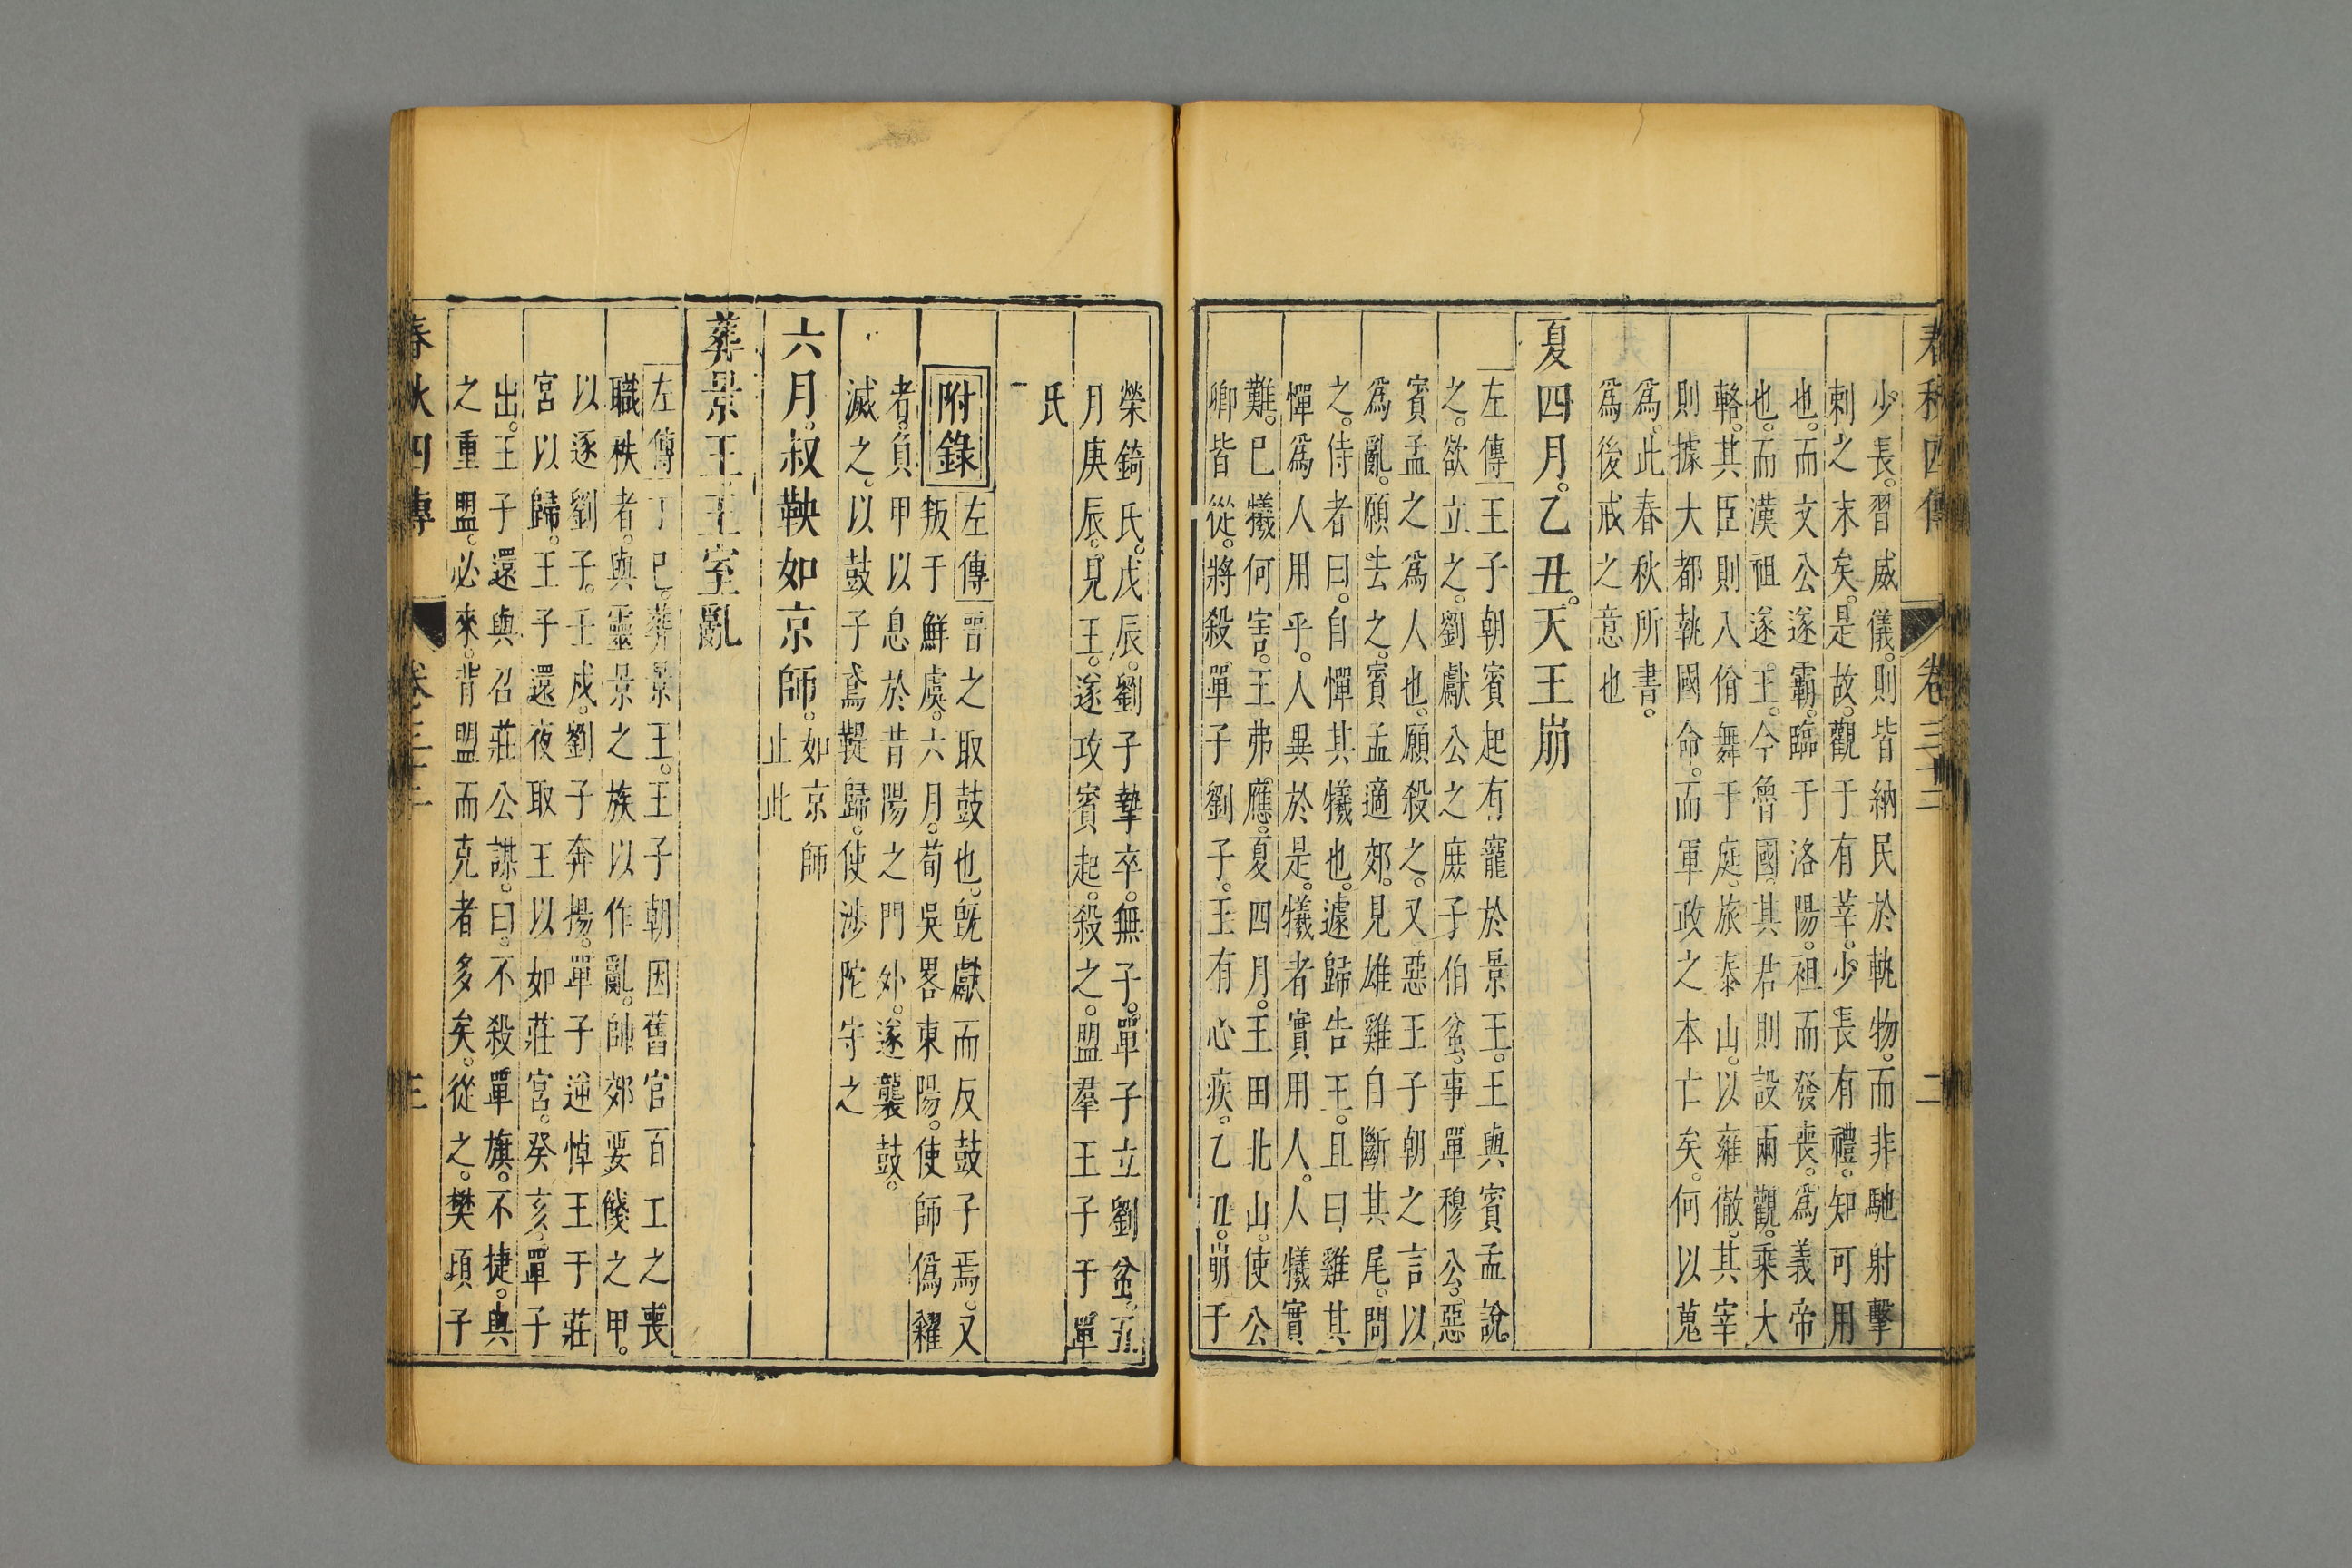 春秋四傳 卷三十三 二
少長。習威儀。則皆納民於軌物。而非馳射擊
刺之末矣。是故觀于有莘。少長有禮。知可用
也。而文公遂霸。臨于洛陽。袒而發喪。爲義帝
也。而漢祖遂王。今魯國其君則設兩觀。乘大
輅。其臣則八佾舞于庭。旅泰山。以雍徹。其宰
則據大都執國命。而軍政之本亡矣。何以蒐
爲。此春秋所書。
爲後戒之意也
夏四月。乙丑。天王崩
左傳王子朝賓起有寵於景王。王與賓孟說
之。欲立之。劉獻公之庶子伯蚠。事單穆公。惡
賓孟之爲人也。願殺之。又惡王子朝之言以
爲亂。願去之。賓孟適郊。見雄雞自斷其尾。問
之。侍者曰。自憚其犧也。遽歸告王。且曰。雞其
憚爲人用乎。人異於是。犧者實用人。人犧實
難。已犧何害。王弗應。夏四月。王田北山。使公
卿皆從。將殺單子劉子。王有心疾。乙丑。崩于
榮錡氏。戊辰。劉子摯卒。無子。單子立劉蚠。五
月庚辰。見王。遂攻賓起。殺之。盟羣王子于單
氏
附錄 左傳晉之取鼓也。旣獻而反鼓子焉。又
叛于鮮虞。六月。荀吳畧東陽。使師僞糴
者。負甲以息於昔陽之門外。遂襲鼓。
滅之。以鼓子鳶鞮歸。使涉陀守之
六月。叔鞅如京師。如京師
止此
葬景王王室亂
左傳丁巳。葬景王。王子朝因舊官百工之喪
職秩者。與靈景之族以作亂。帥郊要餞之甲。
以逐劉子。壬戌。劉子奔揚。單子逆悼王于莊
宮以歸。王子還夜取王以如莊宮。癸亥。單子
出。王子還與召莊公謀。曰。不殺單旗。不捷。與
之重盟。必來。背盟而克者多矣。從之。樊頃子
春秋四傳 卷三十三 三